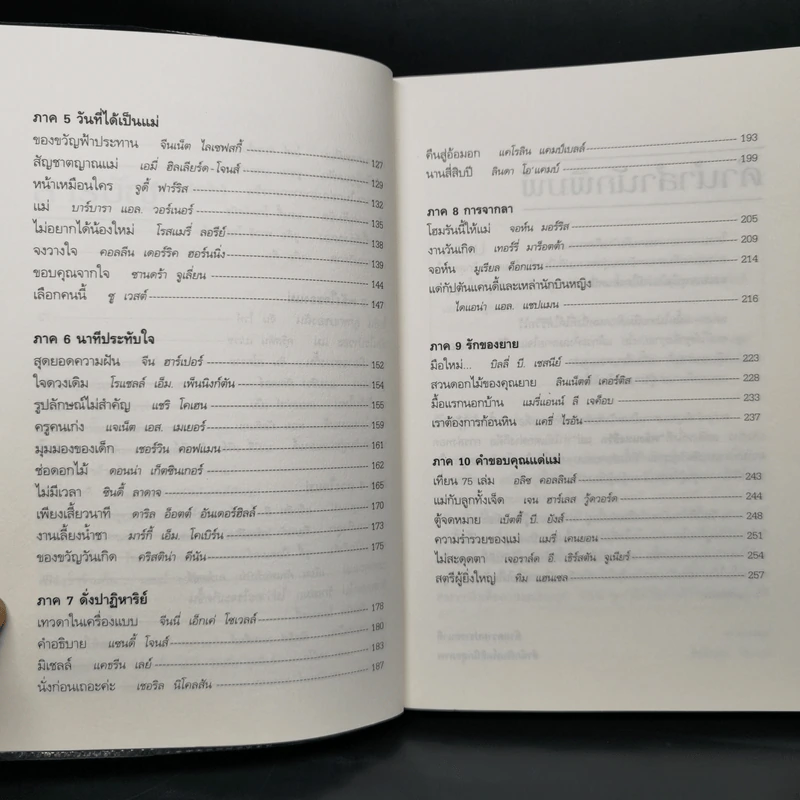 ภาค 5 วันที่ได้เป็นแม่
ของขวัญฟ้าประทาน จีนเน็ต ไลเซฟสกี้ 127
สัญชาตญาณแม่ เอมี่ ฮิลเลียร์ด-โจนส์ 129
หน้าเหมือนใคร จูดี้ ฟาร์ริส 132
แม่ บาร์บารา แอล. วอร์เนอร์ 135
ไม่อยากได้น้องใหม่ โรสแมรี่ ลอรีย์ 138
จงวางใจ คอลลีน เดอร์ริค ฮอร์นนิ่ง 139
ขอบคุณจากใจ ซานดร้า จูเลี่ยน 144
เลือกคนนี้ ซู เวสต์ 147
ภาค 6 นาทีประทับใจ
สุดยอดความฝัน จีน ฮาร์เปอร์ 152
ใจดวงเดิม โรแชลล์ เอ็ม. เพ็นนิงก์ตัน 154
รูปลักษณ์ไม่สำคัญ แชริ โคเฮน 155
ครูคนเก่ง แจเน็ต เอส. เมเยอร์ 159
มุมมองของเด็ก เชอร์วิน คอฟแมน 161
ช่อดอกไม้ ดอนน่า เก็ตซินเกอร์ 162
ไม่มีเวลา ซินดี้ ลาดาจ 165
เพียงเสี้ยวนาที ดาริล อ็อตต์ อันเตอร์ฮิลล์ 170
งานเลี้ยงน้ำชา มาร์กี้ เอ็ม. โคเบิร์น 173
ของขวัญวันเกิด คริสติน่า คีนัน 175
ภาค 7 ดั่งปาฏิหาริย์
เทวดาในเครื่องแบบ จีนนี่ เอ็กเค่ โซเวลล์ 178
คำอธิบาย แซนดี้ โจนส์ 180
มิเชลล์ แคธรีน เลย์ 183
นั่งก่อนเถอะค่ะ เชอริล นิโคลสัน 187
คืนสู่อ้อมอก แคโรลิน แคมป์เบลล์ 193
นานสี่สิบปี ลินดา โอ'แคมป์ 199
ภาค 8 การจากลา
โฮมรันนี้ให้แม่ จอห์น มอร์ริส 205
งานวันเกิด เทอร์รี่ มาร็อตต้า 209
จอห์น มูเรียล ค็อกแรน 214
แด่กัปตันแคนดี้และเหล่านักบินหญิง
ไดแอน่า แอล. แชปแมน 216
ภาค 9 รักของยาย
มือใหม่... บิลลี่ บี. เชสนีย์ 223
สวนดอกไม้ของคุณยาย ลินเน็ตต์ เคอร์ติส 228
มื้อแรกนอกบ้าน แมรี่แอนน์ ลี เจค็อบ 233
เราต้องการก้อนหิน แคธี่ ไรอัน 237
ภาค 10 คำขอบคุณแด่แม่
เทียน 75 เล่ม อลิซ คอลลินส์ 243
แม่กับลูกทั้งเจ็ด เจน ฮาร์เลส วู้ดวอร์ด 244
ตู้จดหมาย เบ็ตตี้ บี. ยังส์ 248
ความร่ำรวยของแม่ แมรี่ เคนยอน 251
ไม่สะดุดตา เจอราล์ด อี. เธิร์สตัน จูเนียร์ 254
สตรีผู้ยิ่งใหญ่ คิม แฮนเซล 257